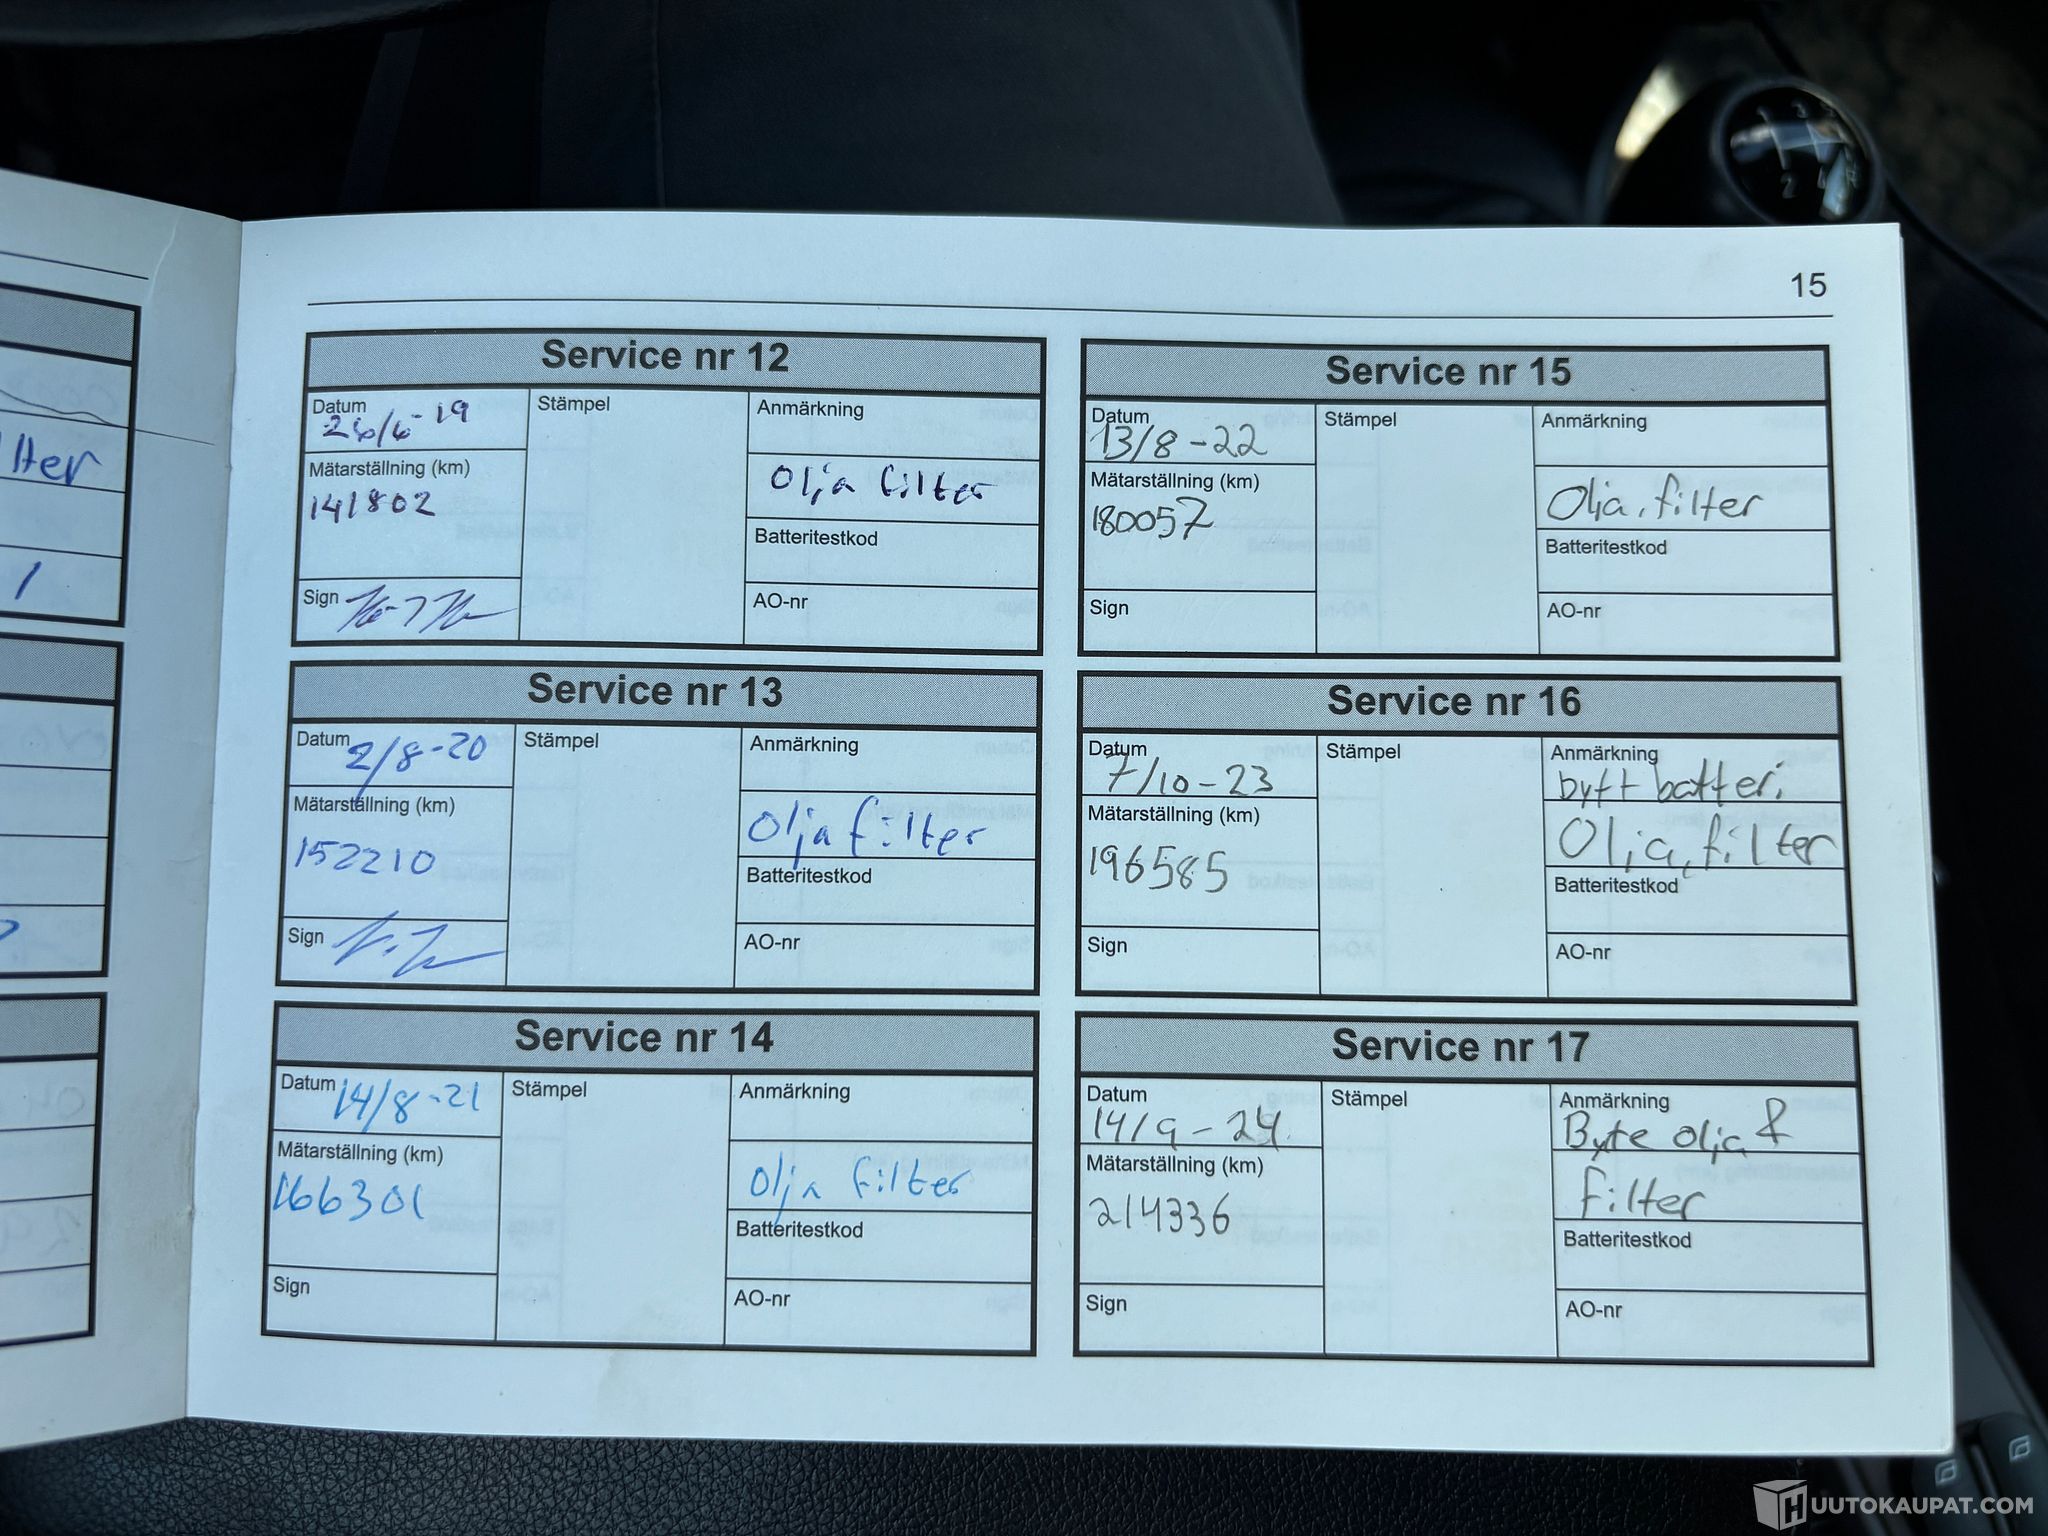 lter
1
15
Service nr 12
Datum
26/6-19
Stämpel
Anmärkning
Mätarställning (km)
141802
Olja filter
Batteritestkod
Sign
AO-nr
Service nr 13
Datum
2/8-20
Stämpel
Anmärkning
Mätarställning (km)
152210
Olja filter
Batteritestkod
Sign
AO-nr
Service nr 14
Datum
14/8-21
Stämpel
Anmärkning
Mätarställning (km)
166301
Olja filter
Batteritestkod
Sign
AO-nr
Service nr 15
Datum
13/8-22
Stämpel
Anmärkning
Mätarställning (km)
180057
Olja, filter
Batteritestkod
Sign
AO-nr
Service nr 16
Datum
7/10-23
Stämpel
Anmärkning
bytt batteri
Mätarställning (km)
196585
Olja, filter
Batteritestkod
Sign
AO-nr
Service nr 17
Datum
14/9-24
Stämpel
Anmärkning
Byte olja &
Mätarställning (km)
214336
filter
Batteritestkod
Sign
AO-nr
HUUTOKAUPAT.COM